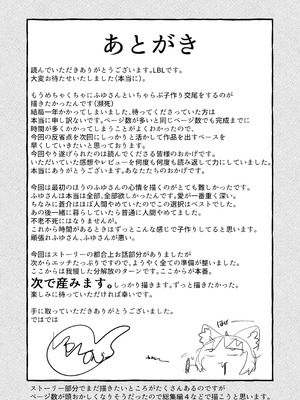 あとがき
読んでいただきありがとうございます。LBLです。
大変お待たせいたしました(本当に)。
もうめちゃくちゃにふゆさんといちゃらぶ子作り交尾をするのが
描きたかったんです(瀕死)
結局一年かかってしまいました、待ってくださっていた方は
本当に申し訳ないです。ページ数が多いと同じページ数でも完成までに
時間が多くかかってしまうことがよくわかったので、
今回の反省点を次回にしっかり活かして作品を出すペースを
早くしていきたいと思っております。
今回やり遂げられたのは読んでくださる皆様のおかげです。
いただいていた感想やレビューを何度も何度も読み返して力にしていました。
本当にありがとうございます。あなたたちのおかげです。
今回は最初のほうのふゆさんの心情を描くのがとても難しかったです。
ふゆさんは本当は全部、全部欲しかったんです。愛が一番重く深い。
ちなみに蒼介はほぼ人間やめていたのでこの選択はベストでした。
あの後一緒に暮らしていたら普通に人間やめてました。
不老不死にはなりませんが。
これから時間があるときはずっとこんな感じで子作りしてると思います。
頑張れふゆさん、ふゆさんが悪い。
今回はストーリーの都合上お話部分がありましたが
次からエッチたっぷりですので、ようやく全ての準備が整いました。
ここからは我慢した分解放のターンです。ここからが本番。
次で産みます。しっかり描きます。ずっと描きたかった。
楽しみに待っていただければ幸いです。
手に取っていただきありがとうございました。
ではでは
ストーリー部分でまだ描きたいところがたくさんあるのですが
ページ数が頭おかしくなりそうだったので総集編4などで描こうと思います。